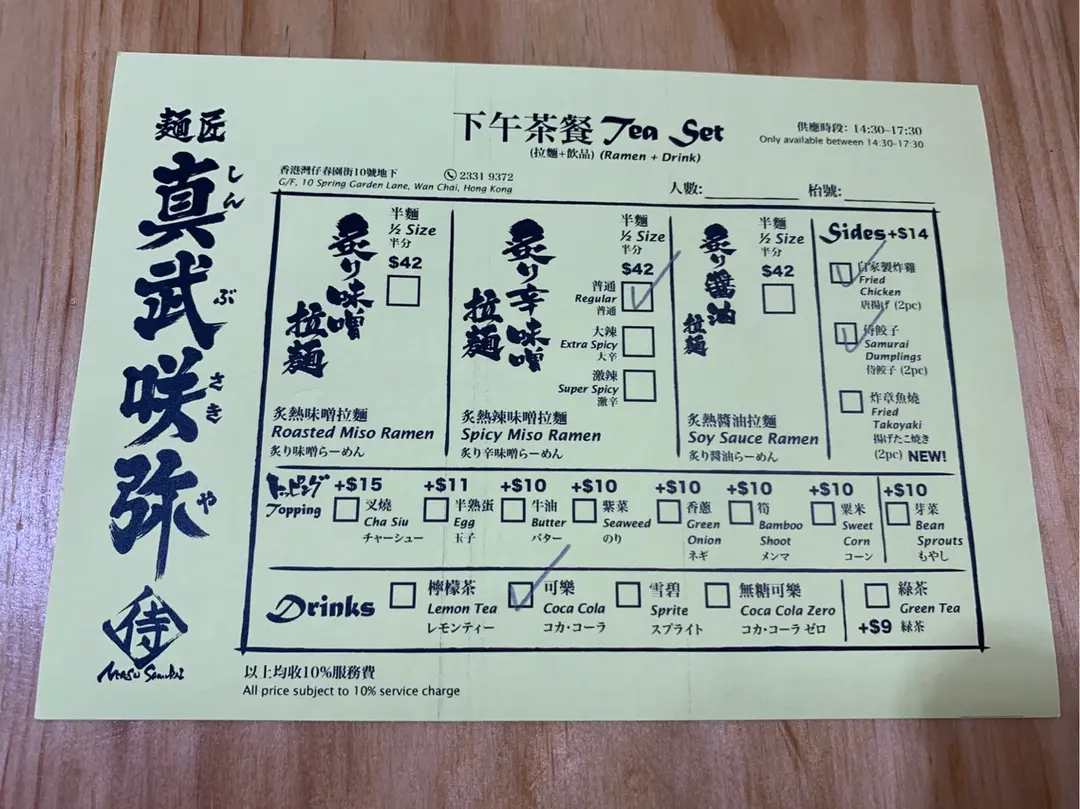 麵匠
真武咲弥
しん
ぶ
さき
や
侍
MENSHO SAMURAI
下午茶餐 Tea Set
(拉麵+飲品) (Ramen + Drink)
供應時段: 14:30-17:30
Only available between 14:30-17:30
香港灣仔春園街10號地下
G/F, 10 Spring Garden Lane, Wan Chai, Hong Kong
2331 9372
人數:
枱號:
炙り味噌
拉麵
半麵
½ Size
半分
$42
炙熱味噌拉麵
Roasted Miso Ramen
炙り味噌らーめん
炙り辛味噌
拉麵
半麵
½ Size
半分
$42
普通
Regular
普通
大辣
Extra Spicy
大辛
激辣
Super Spicy
激辛
炙熱辣味噌拉麵
Spicy Miso Ramen
炙り辛味噌らーめん
炙り醬油
拉麵
半麵
½ Size
半分
$42
炙熱醬油拉麵
Soy Sauce Ramen
炙り醬油らーめん
Sides +$14
自家製炸雞
Fried
Chicken
唐揚げ (2pc)
侍餃子
Samurai
Dumplings
侍餃子 (2pc)
炸章魚燒
Fried
Takoyaki
揚げたこ焼き
(2pc) NEW!
トッピング
Topping
+$15
叉燒
Cha Siu
チャーシュー
+$11
半熟蛋
Egg
玉子
+$10
牛油
Butter
バター
+$10
紫菜
Seaweed
のり
+$10
香蔥
Green
Onion
ネギ
+$10
筍
Bamboo
Shoot
メンマ
+$10
粟米
Sweet
Corn
コーン
+$10
芽菜
Bean
Sprouts
もやし
Drinks
檸檬茶
Lemon Tea
レモンティー
可樂
Coca Cola
コカ・コーラ
雪碧
Sprite
スプライト
無糖可樂
Coca Cola Zero
コカ・コーラ ゼロ
綠茶
Green Tea
+$9 緑茶
以上均收10%服務費
All price subject to 10% service charge